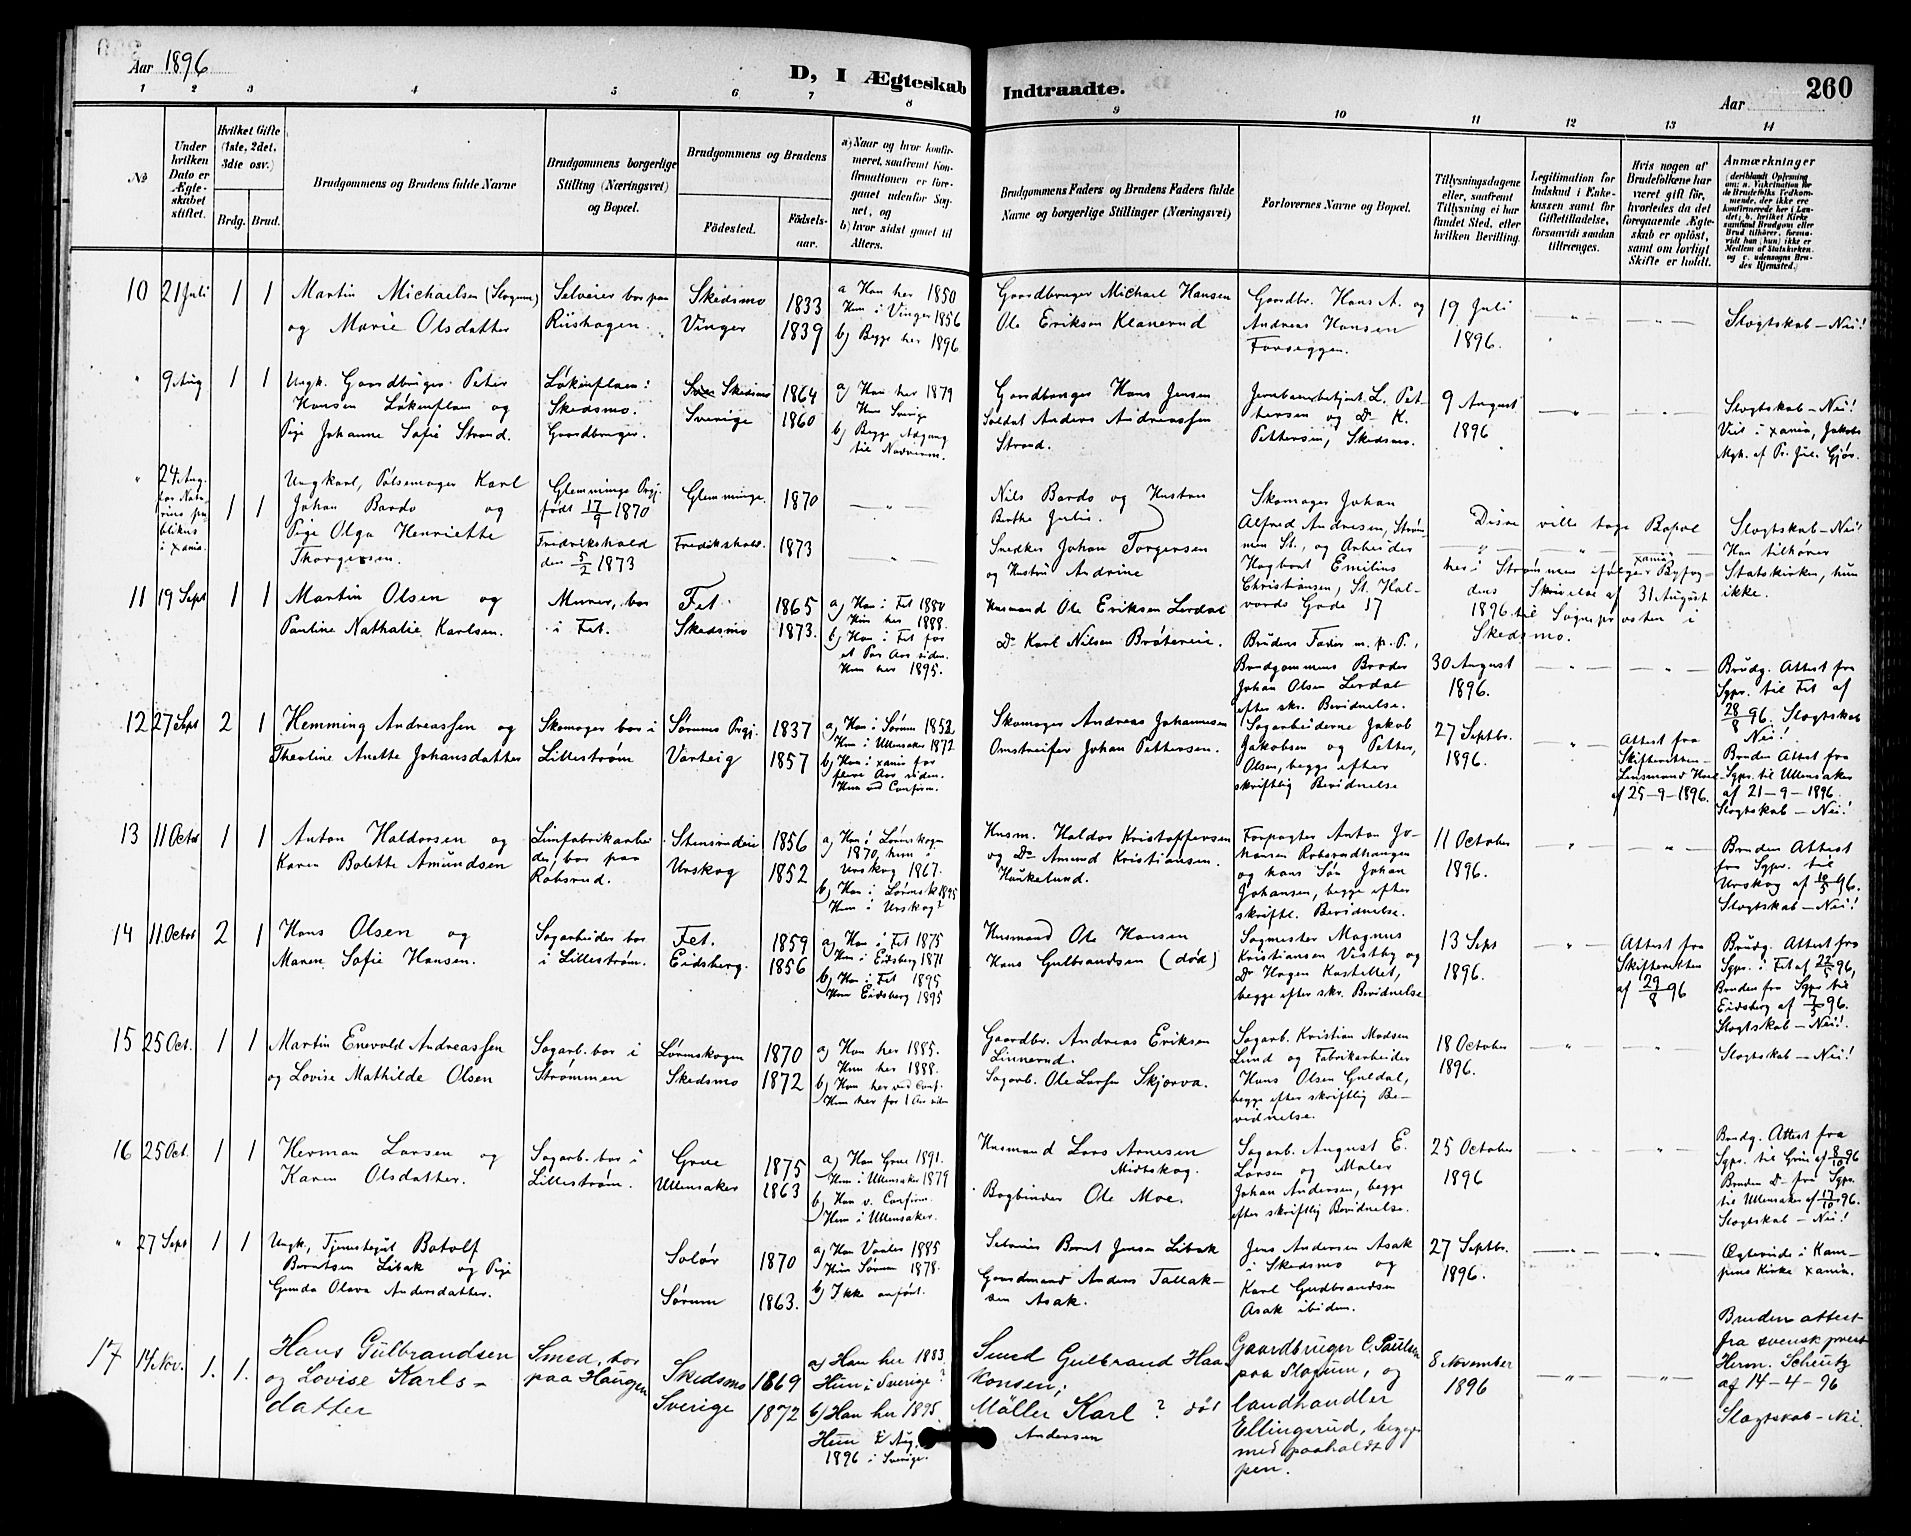 Aar 1896
D, I Ægteskab Indtraadte.
260
Aar
1 2 3 4 5 6 7 8 9 10 11 12 13 14
No
Under hvilken Dato er Ægteskabet stiftet.
Hvilket Gifte (1ste, 2det, 3die osv.)
Brdg. Brud.
Brudgommens og Brudens fulde Navne
Brudgommens borgerlige Stilling (Næringsvei) og Bopæl.
Brudgommens og Brudens
Fødested.
Fødselsaar.
a) Naar og hvor konfirmeret, saafremt Konfirmationen er foregaaet udenfor Sognet, og
b) hvor sidst gaaet til Alters.
Brudgommens Faders og Brudens Faders fulde Navne og borgerlige Stillinger (Næringsvei)
Forlovernes Navne og Bopæl.
Tillysningsdagene eller, saafremt Tillysning ei har fundet Sted, efter hvilken Bevilling.
Legitimation for Indskud i Enkekassen samt for Giftetilladelse, forsaavidt saadan tiltrænges.
Hvis nogen af Brudefolkene har været gift før, hvorledes da det foregaaende Ægteskab er opløst, samt om lovligt Skifte er holdt.
Anmærkninger (deriblandt Opførsing om: a. Vakcination for de Brudefolks Vedkommende, der ikke ere konfirmerede her i Landet; b. hvilket Kirkesamfund Brudgom eller Brud tilhører, forsaavidt han (hun) ikke er Medlem af Statskirken, og c. udensogns Brudes Hjemsted.)
10 21 Juli 1 1
Martin Michaelsen (Slogum)
og Marie Olsdatter
Selveier bor paa
Riishagen.
Skedsmo 1833
Vinger 1839
a Han her 1850
Hun i Vinger 1856
b) Begge her 1896
Gaardbruger Michael Hansen
Ole Eriksen Klanerud
Gaardbr. Hans A. og
Andreas Hansen
Farseggen.
19 Juli
1896.
Slægtskab – Nei!
" 9 Aug 1 1
Ungk. Gaardbruger Peter
Hansen Løkenflaen og
Pige Johanne Sofie Strand.
Løkenflaen:
Skedsmo.
Gaardbruger.
Skedsmo 1864
Sverige 1860
a) Han her 1879
Hun Sverige
b) Begge Adgang
til Nadveren.
Gaardbruger Hans Jensen
Soldat Anders Andreassen
Strand.
Jernbanebetjent L. Pettersen
og Do K.
Pettersen, Skedsmo.
9 August
1896
Slægtskab – Nei!
Viet i Xania, Jakobs
Mgh. af Pr. Jul. Gjør.
" 24 Aug.
for Notarius publikus
i Xania.
1 1
Ungkarl, Pølsemager Karl
Johan Bardo og
Pige Olga Henriette
Thorgersen.
Glemminge Prgj.
født 17/9 1870
Fredrikshald
den 5/2 1873
Glemminge. 1870
Fredrikshald. 1873
Nils Bardo og Hustru
Berthe Julie.
Snedker Johan Torgersen
og Hustru Andrine
Skomager Johan
Alfred Andresen, Strømmen
St., og Arbeider
Hagbart Emilius
Christiansen, St. Halvards
Gade 17
Disse ville tage Bopæl
her i Strømmen ifølge Xania Byfogdens
Skrivelse af 31 August
1896 til Sogneprosten i
Skedsmo.
Slægtskab – Nei!
Han tilhører
Statskirken, hun
ikke.
11 19 Sept 1 1
Martin Olsen og
Pauline Nathalie Karlsen.
Murer, bor
i Fet.
Fet 1865
Skedsmo 1873.
a) Han i Fet 1880
Hun her 1888.
b) Han i Fet for
et Par Aar siden.
Hun her 1895.
Husmand Ole Eriksen Lerdal
Do Karl Nilsen Bråtereie.
Brudens Fader m. p. P.,
Brudgommens Broder
Johan Olsen Lerdal
efter skr. Bevidnelse.
30 August
1896.
Brudg. Attest fra
Sgpr. til Fet af
28/8 96. Slægtskab
Nei!
12 27 Sept 2 1
Hemming Andreassen og
Theoline Anette Johansdatter
Skomager bor i
Lillestrøm
Sørums Prgj. 1837
Varteig 1857
a) Han i Sørum 1852
Hun i Ullensaker 1872
b) Han i Xania for
flere Aar siden.
Hun ved Confirm.
Skomager Andreas Johannesen
Omstreifer Johan Pettersen.
Sagarbeiderne Jakob
Jakobsen og Petter
Olsen, begge efter
skriftlig Bevidnelse
27 Septbr.
1896.
Attest fra
Skifteretten
Lensmand
af 25-9-1896.
Bruden Attest fra
Sgpr. til Ullensaker
af 21-9-1896.
Slægtskab – Nei!
13 11 Octo 1 1
Anton Haldorsen og
Karen Bolette Amundsen
Limfabrikarbeider,
bor paa
Robsrud.
Stensrudeie 1856
Urskog 1852
a) Han i Lørenskogen
1870, hun i
Urskog 1867.
b) Han i Lørensk 1895
Hun i Urskog?
Husm. Haldor Kristoffersen
og Do Amund Kristiansen.
Haukelund.
Forpagter Anton Johansen
Robsrudhaugen
og hans Søn Johan
Johansen, begge efter
skriftl. Bevidnelse.
11 October
1896.
Bruden Attest
fra Sgpr. til
Urskog af 10/5 96.
Slægtskab – Nei!
14 11 Octo 2 1
Hans Olsen og
Maren Sofie Hansen.
Sagarbeider bor
i Lillestrøm.
Fet. 1859
Eidsberg. 1856
a) Han i Fet 1875
Hun i Eidsberg 1871
b) Han i Fet 1895
Hun Eidsberg 1895
Husmand Ole Hansen
Hans Gulbrandsen (død)
Sagmester Magnus
Kristiansen Vestby og
Do Hagen Kastellet,
begge efter skr. Bevidnelse
13 Sept
1896.
Attest fra
Skifteretten
af 29/8 96
Brudg. Attest fra
Sgpr. i Fet af 22/5 96,
Bruden fra Sgpr til
Eidsberg af 7/5 96.
Slægtskab – Nei!
15 25 Oct. 1 1
Martin Enevold Andreassen
og Lovise Mathilde Olsen
Sagarb. bor i
Strømmen
Lørenskogen 1870
Skedsmo 1872
a) Han her 1885.
Hun her 1888.
b) Han her ved Conf.
Hun her for 1 Aar siden
Gaardbr. Andreas Eriksen
Linnerud.
Sagarb. Ole Larsen Skjørva.
Sagarb. Kristian Madsen
Lund og Fabrikarbeider
Hans Olsen Guldal,
begge efter skriftlig Bevidnelse.
18 October
1896.
Slægtskab – Nei!
16 25 Oct. 1 1
Herman Larsen og
Karen Olsdatter.
Sagarb. bor i
Lillestrøm.
Grue 1875
Ullensaker 1863
a) Han Grue 1891.
Hun i Ullensaker 1879
b) Han v. Confirm.
Hun i Ullensaker.
Husmand Lars Arnesen
Midtskog.
Bogbinder Ole Moe.
Sagarb. August E.
Larsen og Maler
Johan Andersen, begge
efter skriftlig Bevidnelse.
25 October
1896
Brudg. Attest fra
Sgpr. til Grue af 8/10 96
Bruden Do fra Sgpr.
til Ullensaker af 17/10 96.
Slægtskab – Nei!
" 27 Sept 1 1
Ungk, Tjenestegut Botolf
Berntsen Libak og Pige
Gunda Olava Andersdatter.
Solør 1870
Sørum 1863.
a) Han Vaaler 1885
Hun Sørum 1878.
b) Ikke anført.
Selveier Bernt Jensen Libak
Gaardmand Anders Tallaksen
Asak.
Jens Andersen Asak
i Skedsmo og
Karl Gudbrandsen
Asak ibiden.
27 Septbr.
1896.
Ægteviede i Kampens
Kirke Xania.
17 14 Nov. 1. 1.
Hans Gulbrandsen
og Lovise Karlsdatter
Smed, bor
paa Haugen
Skedsmo 1869
Sverige 1872
a) Han her 1883.
Hun i Sverige?
b) Han her 1895.
Hun i Aug.
1896 i Sverige.
Smed Gulbrand Haakonsen;
Møller Karl? død
Andersen
Gaardbruger C. Paulsen
paa Slogum, og
landhandler
Ellingsrud, begge
med paaholdt
pen.
8 November
1896
Bruden attest
fra svensk prest
Herm. Scheutz
af 14-4-96
Slægtskab – Nei